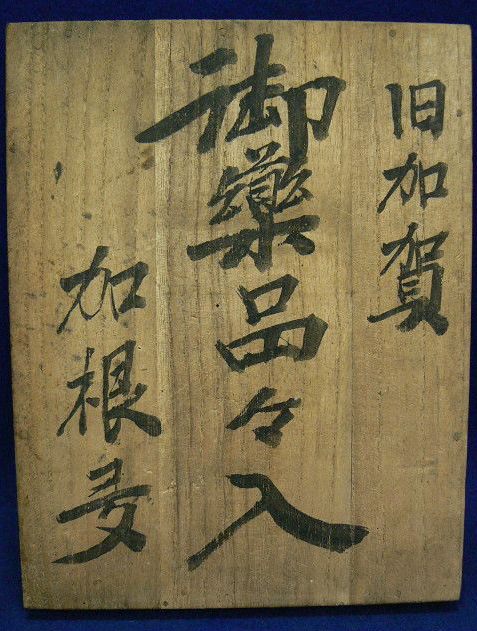 旧加賀
御藥品々入
加根